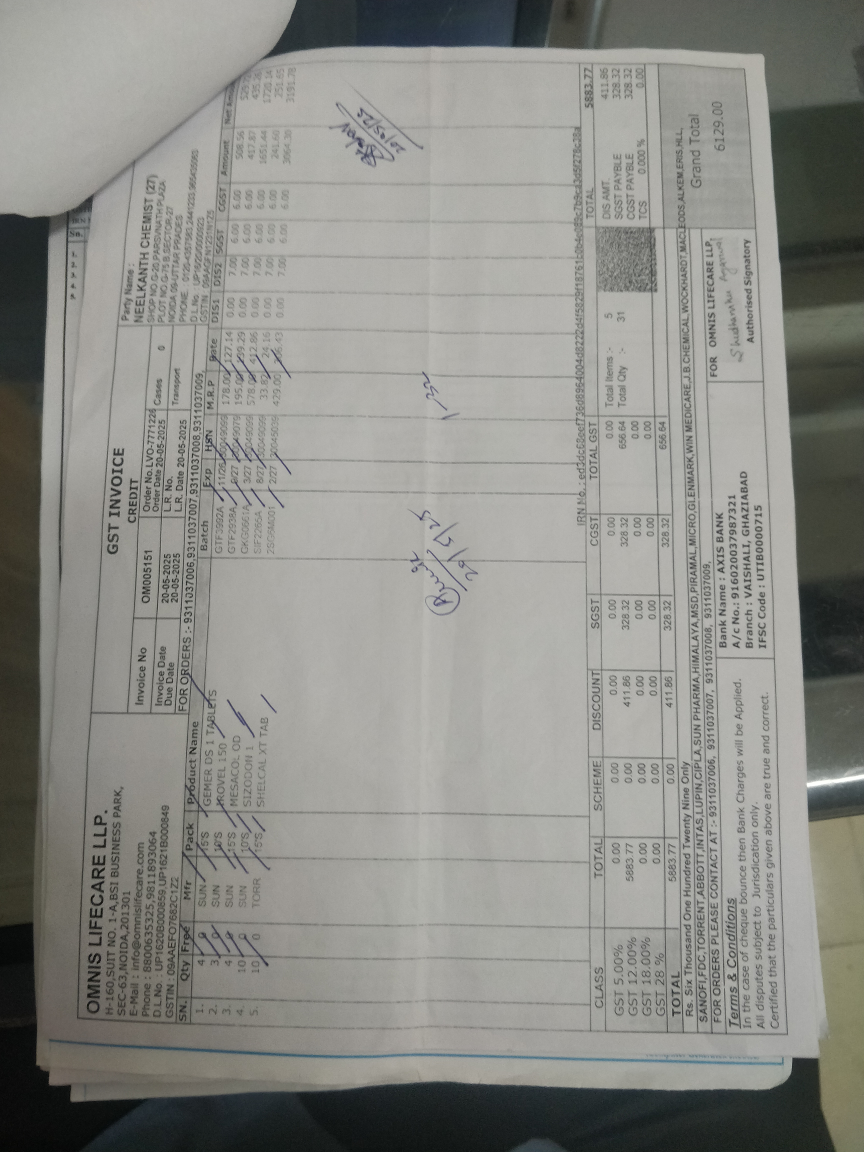 OMNIS LIFECARE LLP.
H-160,SUIT NO. 1-A,BSI BUSINESS PARK,
SEC-63,NOIDA,201301
E-Mail : info@omnislifecare.com
Phone : 8800635325,9811893064
D.L.No : UP1620B000859,UP1621B000849
GSTIN : 09AAEFO7682C1Z2
GST INVOICE
CREDIT
Invoice No OM005151 Order No.LVO-7771226
Order Date 20-05-2025 Cases 0
Invoice Date 20-05-2025 L.R. No. Transport
Due Date 20-05-2025 L.R. Date 20-05-2025
FOR ORDERS :- 9311037006,9311037007,9311037008,9311037009,
Party Name :
NEELKANTH CHEMIST (27)
SHOP NO G-20,PARSVNATH PLAZA
PLOT NO G-75 B,SECTOR-27
NOIDA 09-UTTAR PRADES
SN. Qty Free Mfr Pack Product Name Batch Exp HSN M.R.P Rate DIS1 DIS2 SGST CGST Amount
1. 4 0 SUN 15'S GEMER DS 1 TABLETS GTF0992A 178.00 127.14 0.00 7.00 6.00 6.00 508.56
2. 3 0 SUN 10'S IROVEL 150 GTF2938A 9/27 195.00 0.00 7.00 6.00 6.00 417.87
3. 4 0 SUN 15'S MESACOL OD GKG0661A 3/27 578.00 412.86 0.00 7.00 6.00 6.00 1651.44
4. 10 0 SUN 10'S SIZODON 1 SIF2265A 8/27 33.82 24.16 0.00 7.00 6.00 6.00 241.60
5. 10 0 TORR 15'S SHELCAL XT TAB 2/27 429.00 0.00 7.00 6.00 6.00 3191.78
CLASS TOTAL SCHEME DISCOUNT SGST CGST TOTAL GST
GST 5.00% 0.00 0.00 0.00 0.00 0.00 0.00
GST 12.00% 5883.77 0.00 411.86 328.32 328.32 656.64
GST 18.00% 0.00 0.00 0.00 0.00 0.00 0.00
GST 28 % 0.00 0.00 0.00 0.00 0.00 0.00
TOTAL 5883.77 0.00 411.86 328.32 328.32 656.64
Total Items :- 5
Total Qty :- 31
TOTAL 5883.77
DIS AMT. 411.86
SGST PAYBLE 328.32
CGST PAYBLE 328.32
TCS 0.000 % 0.00
Grand Total 6129.00
Rs. Six Thousand One Hundred Twenty Nine Only
SANOFI,FDC,TORRENT,ABBOTT,INTAS,LUPIN,CIPLA,SUN PHARMA,HIMALAYA,MSD,PIRAMAL,MICRO,GLENMARK,WIN MEDICARE,J.B.CHEMICAL,WOCKHARDT,MACLEODS,ALKEM,ERIS,HLL,
FOR ORDERS PLEASE CONTACT AT :- 9311037006, 9311037007, 9311037008, 9311037009,
Terms & Conditions
In the case of cheque bounce then Bank Charges will be Applied.
All disputes subject to Jurisdication only.
Certified that the particulars given above are true and correct.
Bank Name : AXIS BANK
A/c No.: 916020037987321
Branch : VAISHALI, GHAZIABAD
IFSC Code : UTIB0000715
FOR OMNIS LIFECARE LLP.
Authorised Signatory